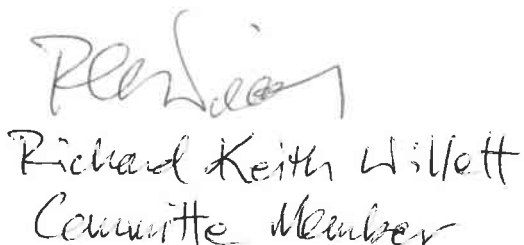 Richard Keith Willett
Committe Member